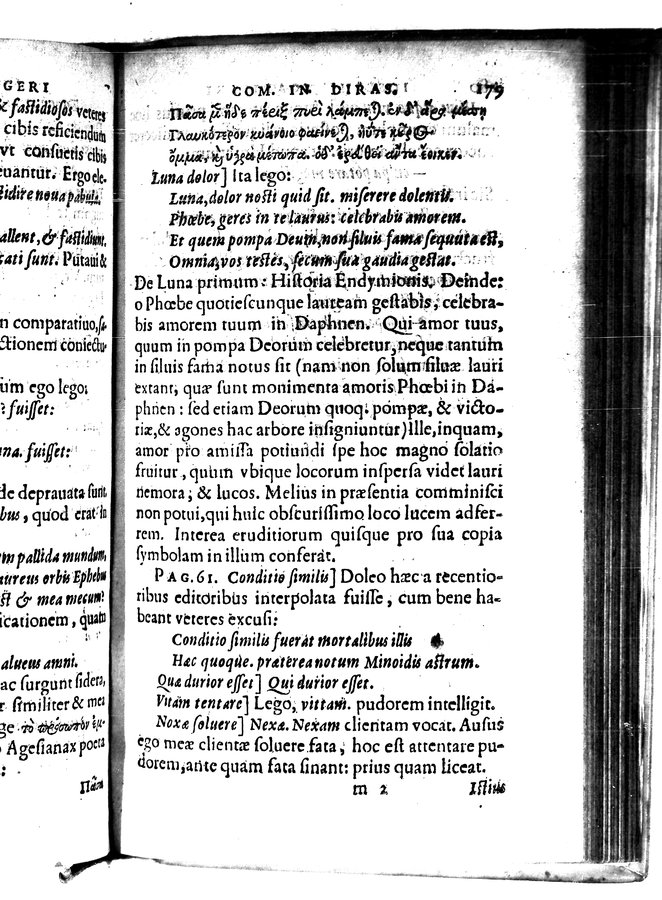 GERI
& fastidiosos veteres
cibis reficiendum
vt consuetis cibis
Ergo ele-
stidire noua pabula.
allent, & fastidiunt.
cati sunt. Putaui &
n comparatiuo, sa-
ctionem coniectu-
um ego lego:
? fuisset:
na. fuisset:
de deprauata sunt.
bus, quod erat in
m pallida mundum,
aureus orbis Ephebus
st & mea mecum?
icationem, quam
alueus amni.
ac surgunt sidera,
r similiter & mea
ge τὸ πρόσωπον ἐμ-
Agesianax poeta
:
Πᾶσα
COM. IN DIRAS. 179
Πᾶσα ἥδε πέριξ ἐν δ' μέσῃ
Γλαυκότερον κυάνοιο ἠΰτε
ὄμμα, ἔοικεν.
Luna dolor] Ita lego:
Luna, dolor nosti quid sit. miserere dolentis.
Phœbe, geres in te laurus: celebrabis amorem.
Et quem pompa Deum, non siluis fama sequuta est,
Omnia, vos testes, secum sua gaudia gestat.
De Luna primum: Historia Endymionis. Deinde:
o Phœbe quotiescunque lauream gestabis, celebra-
bis amorem tuum in Daphnen. Qui amor tuus,
quum in pompa Deorum celebretur, neque tantum
in siluis fama notus sit (nam non solum siluæ lauri
extant, quæ sunt monimenta amoris Phœbi in Da-
phnen: sed etiam Deorum quoq; pompæ, & victo-
riæ, & agones hac arbore insigniuntur) ille, inquam,
amor pro amissa potiundi spe hoc magno solatio
fruitur, quum vbique locorum inspersa videt lauri
nemora, & lucos. Melius in præsentia comminisci
non potui, qui huic obscurissimo loco lucem adfer-
rem. Interea eruditiorum quisque pro sua copia
symbolam in illum conferat.
PAG. 61. Conditio similis] Doleo hæc a recentio-
ribus editoribus interpolata fuisse, cum bene ha-
beant veteres excusi:
Conditio similis fuerat mortalibus illis
Hac quoque. præterea notum Minoidis astrum.
Quæ durior esset] Qui durior esset.
Vitam tentare] Lego, vittam. pudorem intelligit.
Noxæ soluere] Nexæ. Nexam clientam vocat. Ausus
ego meæ clientæ soluere fata, hoc est attentare pu-
dorem, ante quam fata sinant: prius quam liceat.
m 2 Istius